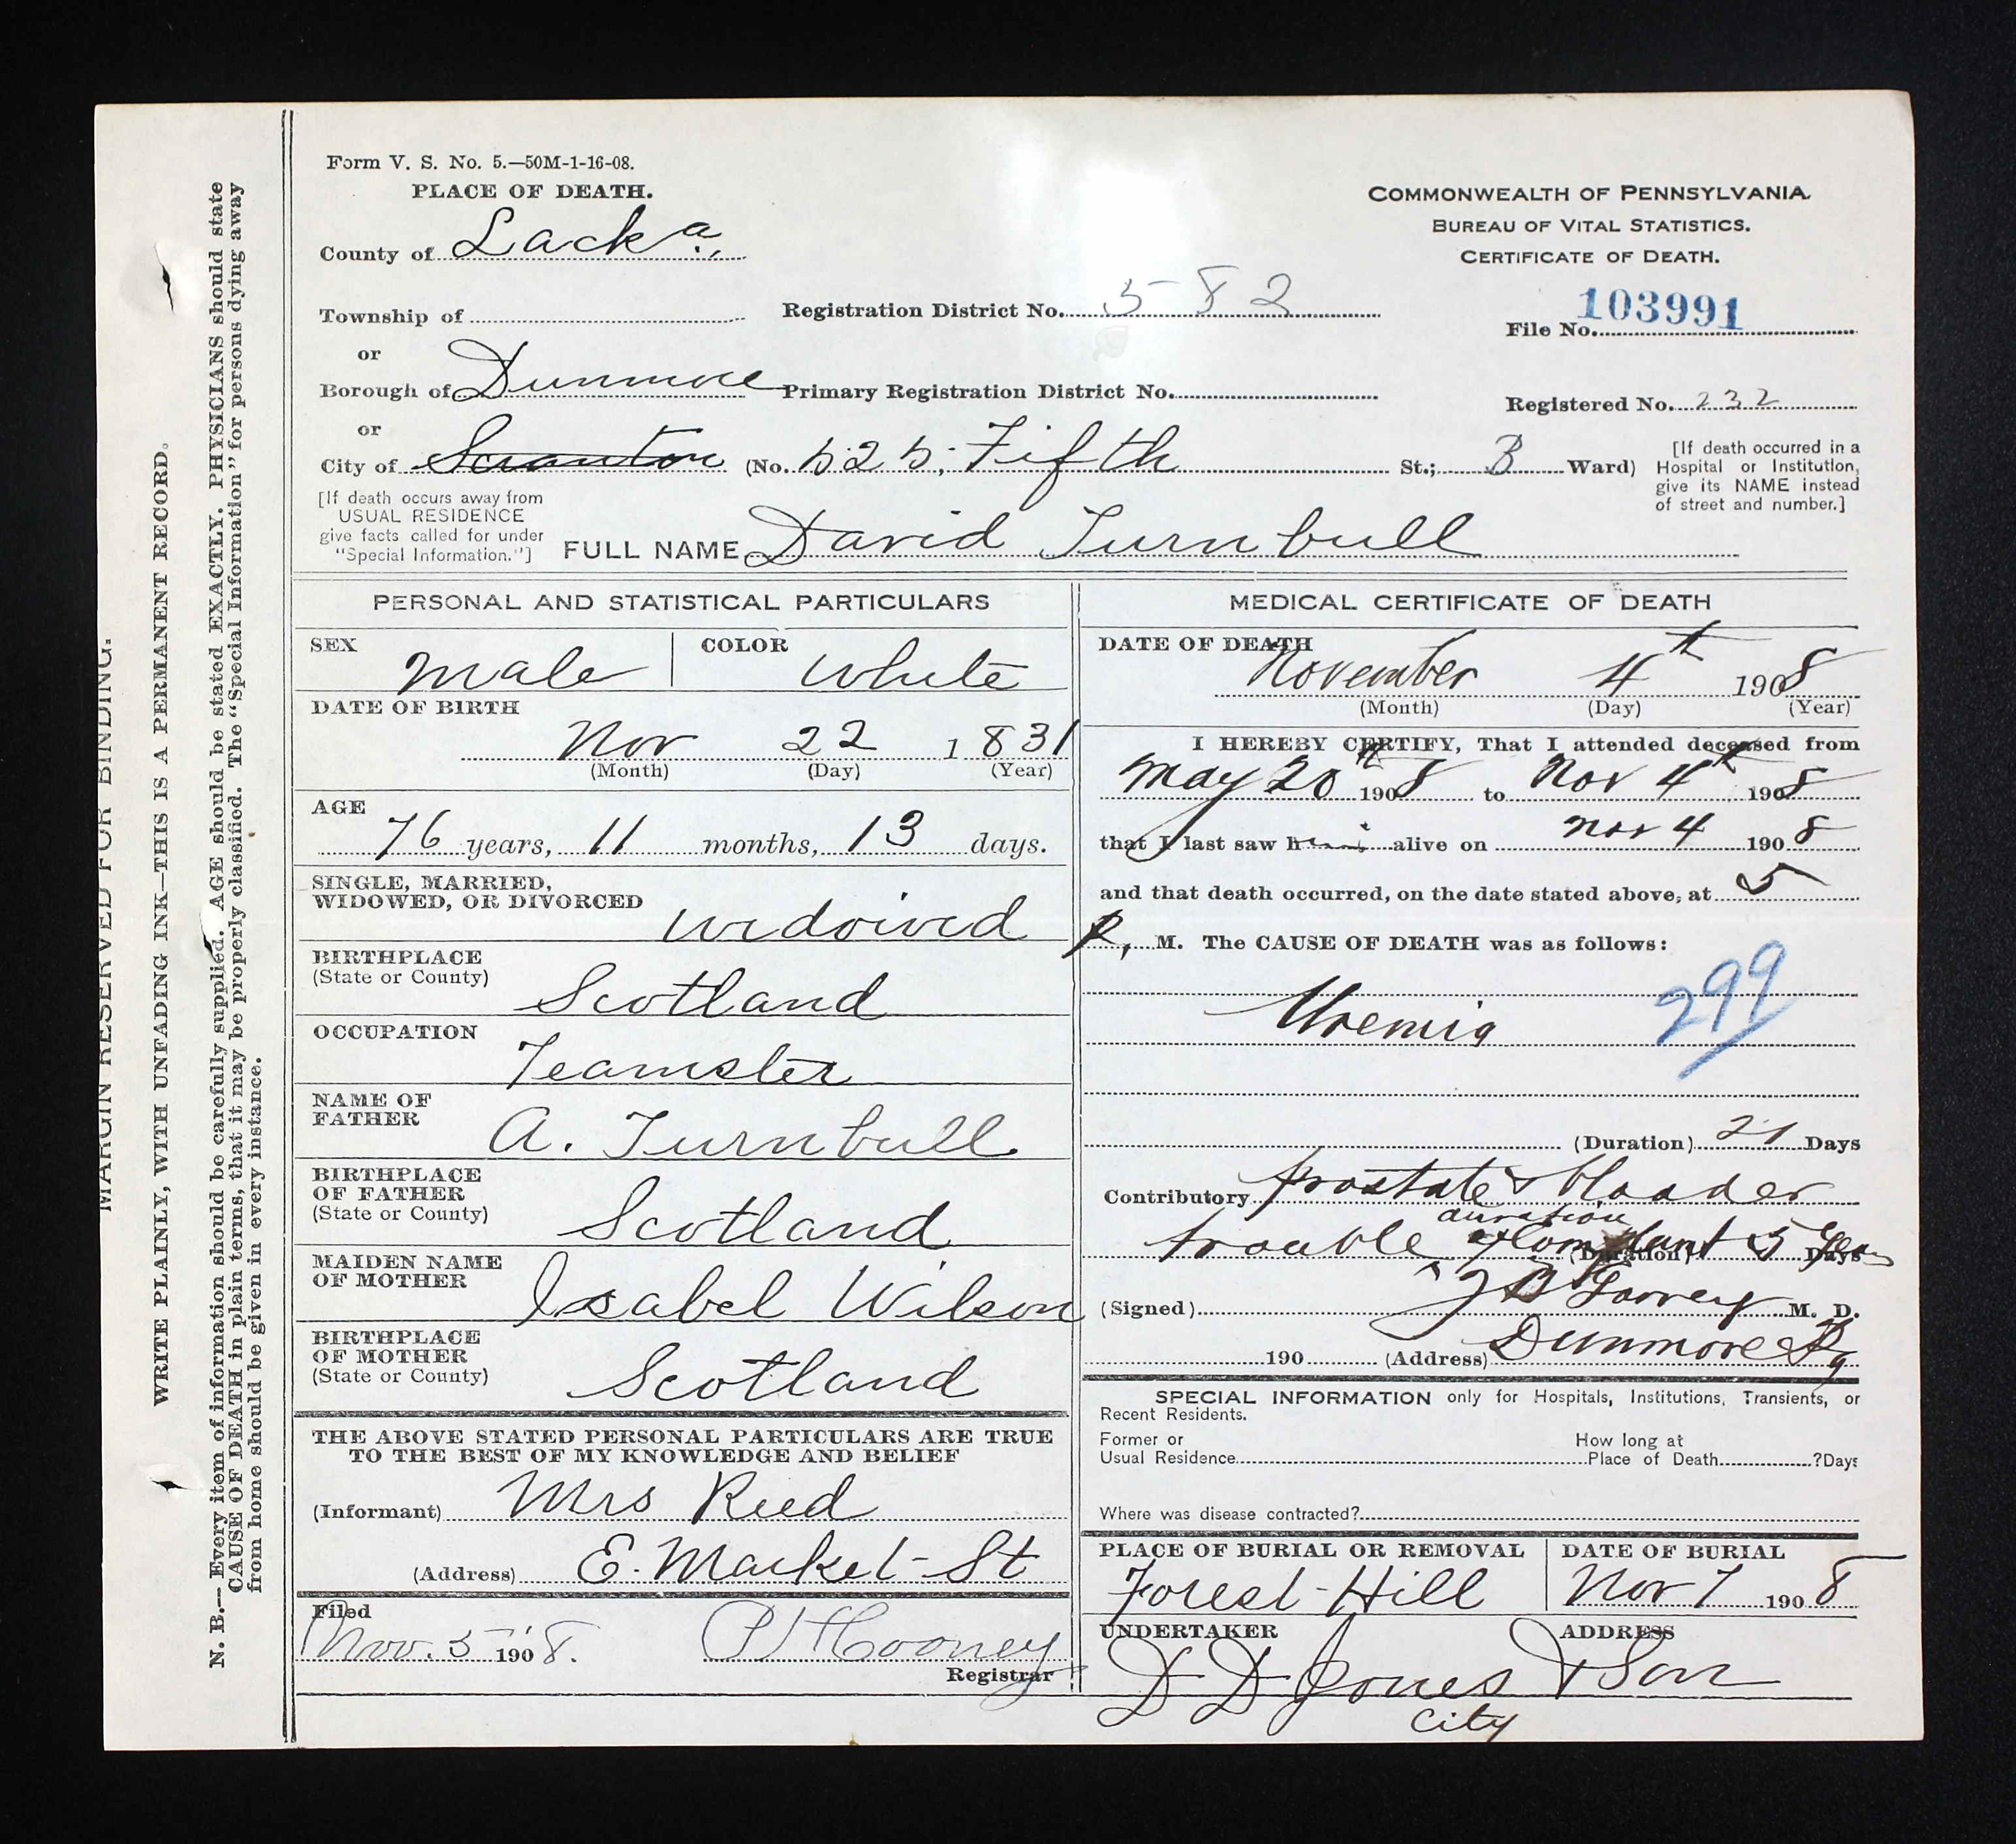 Form V. S. No. 5.—50M-1-16-08.
PLACE OF DEATH.
County of Lacka.
Township of
or
Borough of Dunmore
or
City of Scranton (No. 525, Fifth St.; B Ward)
[If death occurs away from USUAL RESIDENCE give facts called for under "Special Information."]
Registration District No. 582
Primary Registration District No.
COMMONWEALTH OF PENNSYLVANIA.
BUREAU OF VITAL STATISTICS.
CERTIFICATE OF DEATH.
File No. 103991
Registered No. 232
[If death occurred in a
Hospital or Institution,
give its NAME instead
of street and number.]
FULL NAME David Turnbull
PERSONAL AND STATISTICAL PARTICULARS
SEX Male
COLOR White
DATE OF BIRTH
Nov 22 1831
(Month) (Day) (Year)
AGE
76 years, 11 months, 13 days.
SINGLE, MARRIED,
WIDOWED, OR DIVORCED widowed
BIRTHPLACE
(State or County) Scotland
OCCUPATION
Teamster
NAME OF
FATHER A. Turnbull
BIRTHPLACE
OF FATHER
(State or County) Scotland
MAIDEN NAME
OF MOTHER Isabel Wilson
BIRTHPLACE
OF MOTHER
(State or County) Scotland
THE ABOVE STATED PERSONAL PARTICULARS ARE TRUE
TO THE BEST OF MY KNOWLEDGE AND BELIEF
(Informant) Mrs Reed
(Address) E. Market St
Filed
Nov. 5 1908. P J Hooney
Registrar
MEDICAL CERTIFICATE OF DEATH
DATE OF DEATH
November 4th 1908
(Month) (Day) (Year)
I HEREBY CERTIFY, That I attended deceased from
May 20th 1908 to Nov 4th 1908
that I last saw him alive on Nov 4 1908
and that death occurred, on the date stated above, at 5
P. M. The CAUSE OF DEATH was as follows:
Uremia 299
(Duration) 21 Days
Contributory prostate & bladder
trouble duration (Duration) 5 Years Days
(Signed) M. D.
190 (Address) Dunmore Pa
SPECIAL INFORMATION only for Hospitals, Institutions, Transients, or
Recent Residents.
Former or
Usual Residence
How long at
Place of Death ?Days
Where was disease contracted?
PLACE OF BURIAL OR REMOVAL
Forest Hill
DATE OF BURIAL
Nov 7 1908
UNDERTAKER ADDRESS
D D Jones & Son
City
MARGIN RESERVED FOR BINDING.
WRITE PLAINLY, WITH UNFADING INK—THIS IS A PERMANENT RECORD.
N. B.—Every item of information should be carefully supplied. AGE should be stated EXACTLY. PHYSICIANS should state
CAUSE OF DEATH in plain terms, that it may be properly classified. The "Special Information" for persons dying away
from home should be given in every instance.